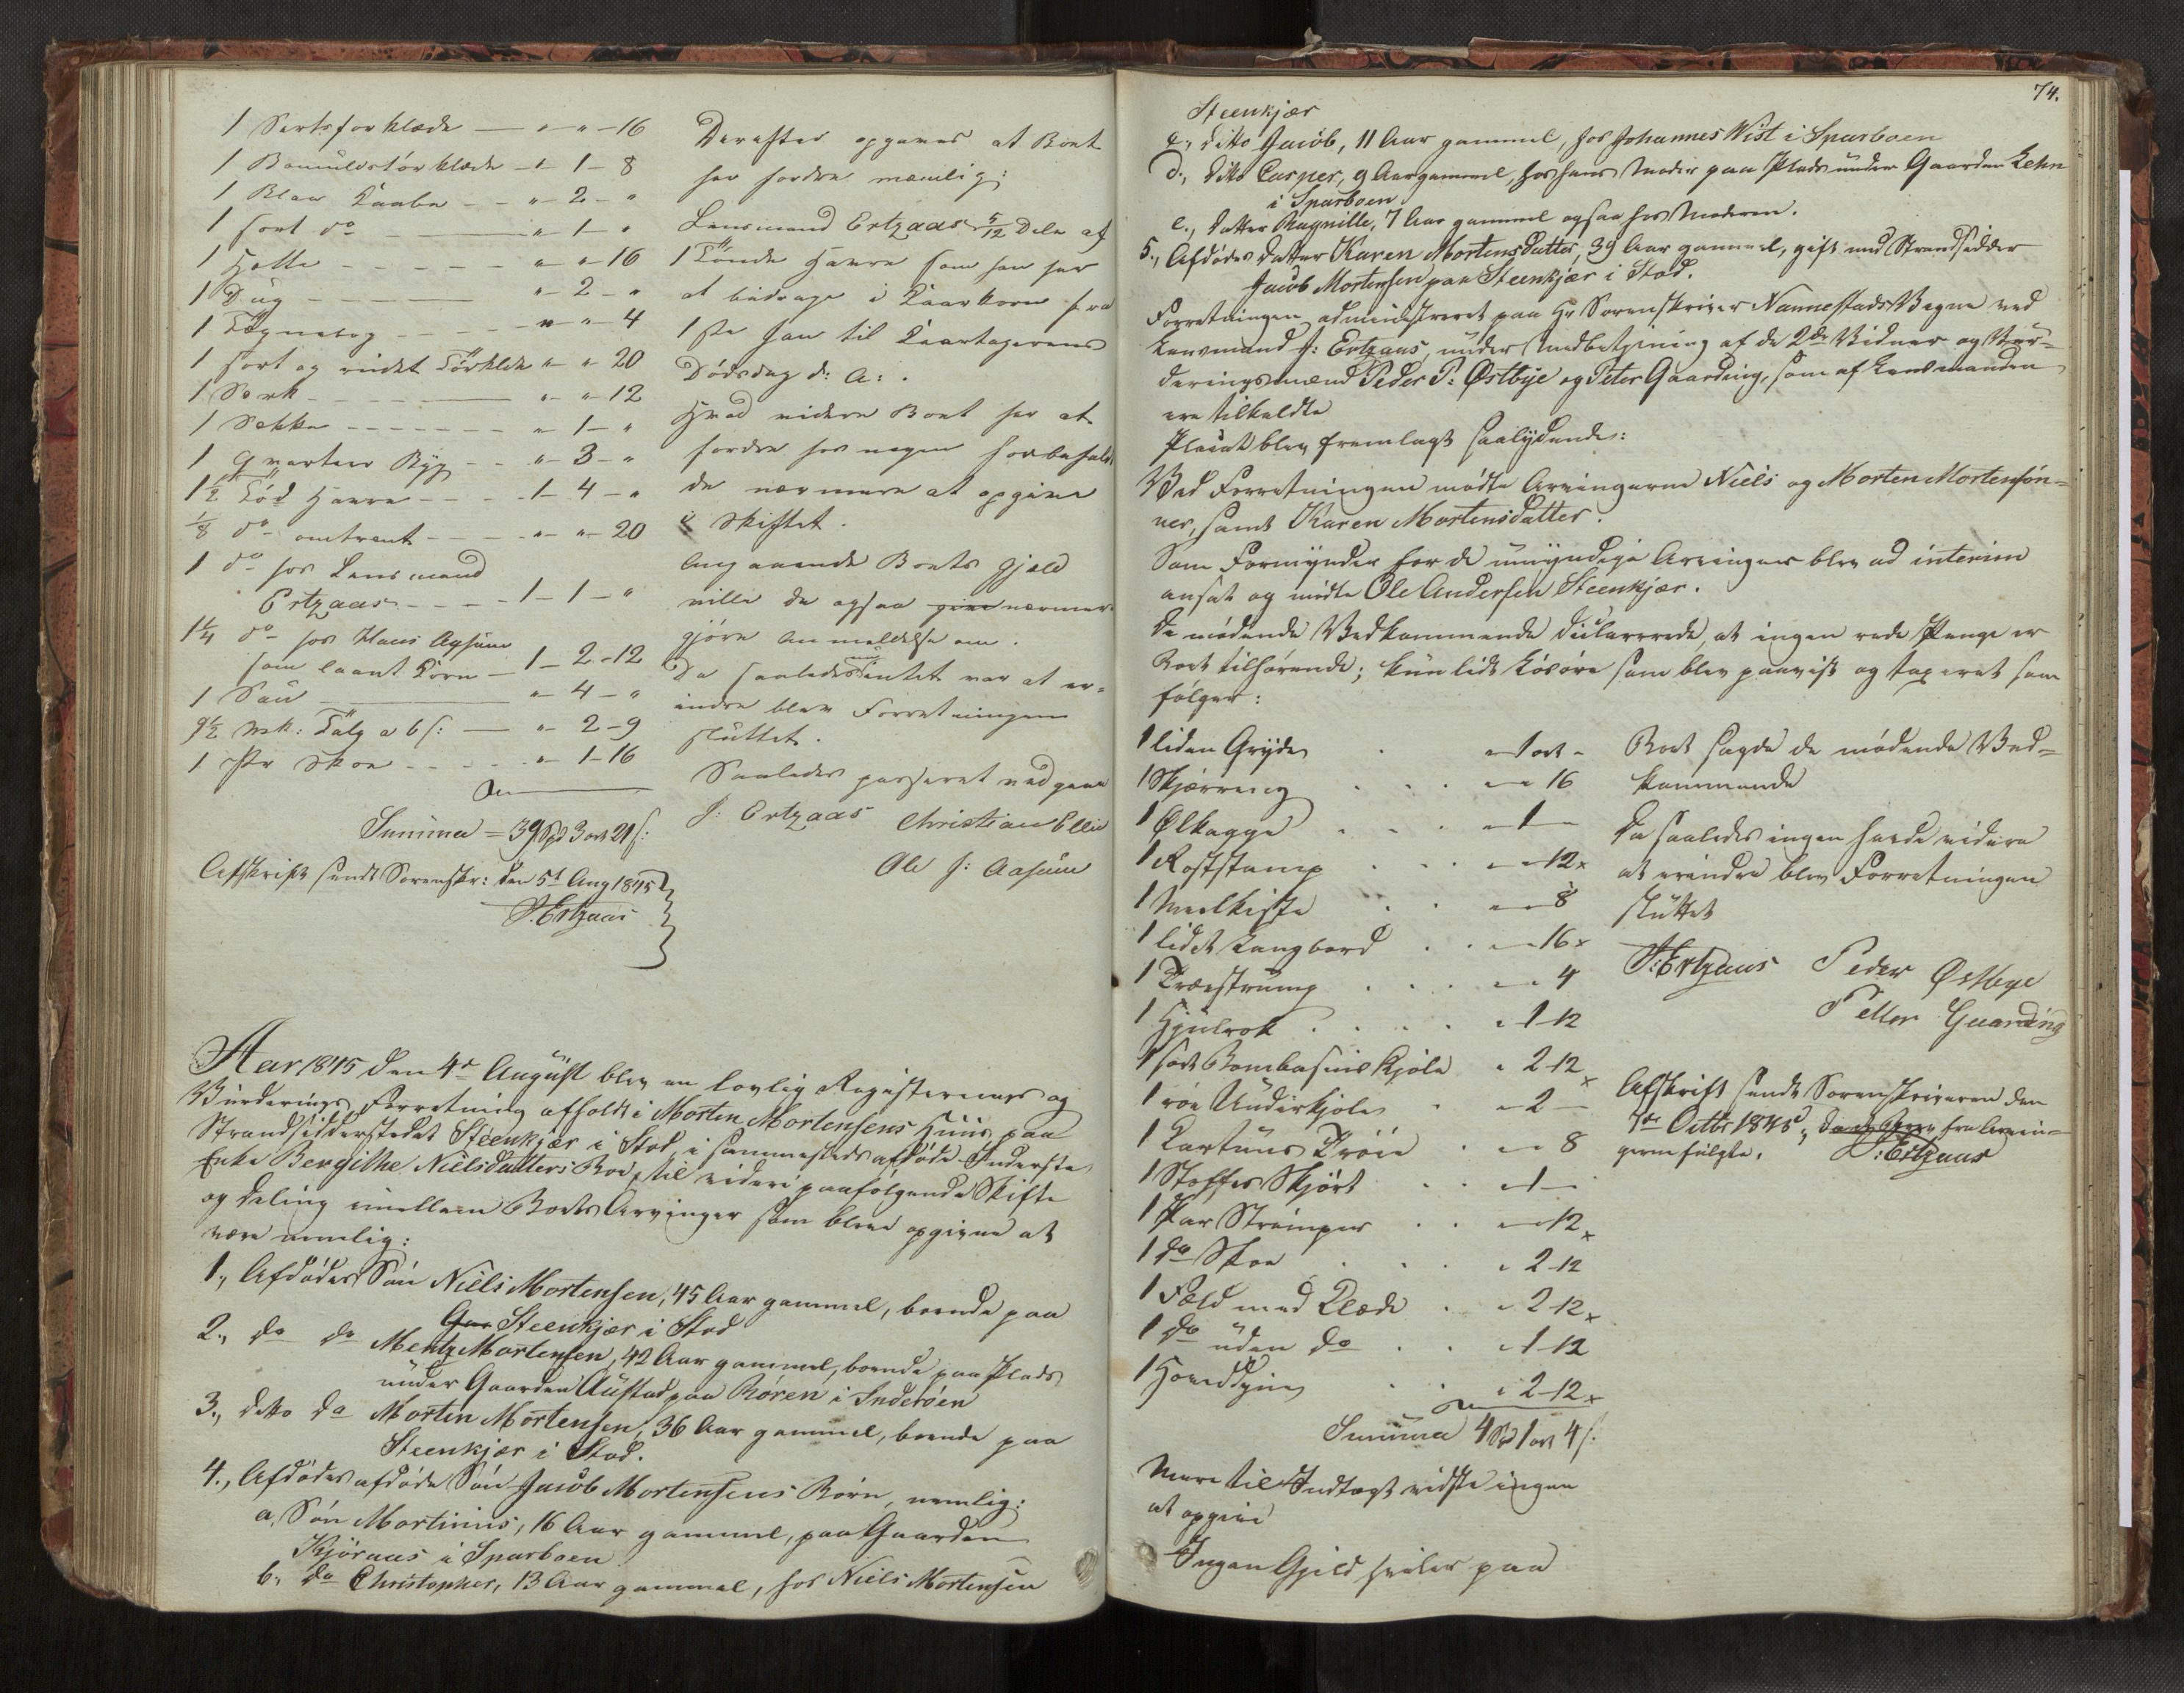 1 Sertsforklæde — " " - 16
1 Bomuldstörklæde - " - 1 - 8
1 Blaa Kaabe - - " - 2 - "
1 sort do — " - 1 - "
1 Hette - - - - - " - " - 16
1 Dug - - - - " - 2 - "
1 - - - " - " - 4
1 sort og rudet Törklde " - " 20
1 Særk - - - - " - " - 12
1 Sække - - - - - " - 1 - "
1 Qvarteer Byg - - " - 3 - "
1½ Töd Havre - - - 1 - 4 - "
⅛ do omtrent - - - " - " - 20
1 do hos Lensmand
Ertzaas - - - - 1 - 1 - "
1¼ do hos Hans
som laant Korn — 1 - 2 - 12
1 Sau — " - 4 - "
9½ Mk: Talg a 6 s: — " - 2 - 9
1 Par Skoe - - - - " - 1 - 16
Summa = 39 Spd 3 ort 21 s:
Afskrift sendt Sorenskr: den 5t Aug 1845
J. Ertzaas
Derefter opgaves at Boet
har fordre nemlig:
Lensmand Ertzaas 5/12 Dele af
1 Tönde Havre som han har
at bidrage i Kaarkorn fra
1ste Jan til Kaartagerens
Dödsdag d: A:.
Hvad videre Boet har at
fordre hos nogen forbeholdt
de nærmere at opgive
i Skiftet.
Angaaende Boets Gjeld
ville de ogsaa give nærmere
gjöre Anmeldelse om.
Da saaledes nu intet var at er-
indre blev Forretningen
sluttet.
Saaledes passeret vedgaaes
J: Ertzaas Christian
Ole J:
Aar 1845 den 4de August blev en lovlig Registerings og
Vurderings Forretning afholdt i Morten Mortensens Huus paa
Strandsidderstedet Steenkjær i Stod i sammesteds afdöde Inderste
Enke Bergithe Nielsdatters Boe, til videre paafölgende Skifte
og Deling imellem Boets Arvinger som bleve opgivne at
være nemlig:
1., Afdödes Sön Niels Mortensen, 45 Aar gammel, boende paa
Gaa Steenkjær i Stod
2., do do Mentz Mortensen, 42 Aar gammel, boende paa Plads
under Gaarden Austad paa Rören i Inderöen
3., ditto do Morten Mortensen, 36 Aar gammel, boende paa
Steenkjær i Stod.
4., Afdödes afdöde Sön Jacob Mortensens Börn, nemlig:
a, Sön Mortinus, 16 Aar gammel, paa Gaarden
Kjöraas i Sparboen
b., do Christopher, 13 Aar gammel, hos Niels Mortensen
74.
Steenkjær
c., ditto Jacob, 11 Aar gammel, hos Johannes Wist i Sparboen
d., ditto Casper, 9 Aar gammel, hos hans Moder paa Plads under Gaarden Lehn
i Sparboen
e., Datter Ragnille, 7 Aar gammel ogsaa hos Moderen.
5., Afdödes Datter Karen Mortensdatter, 39 Aar gammel, gift med Strandsidder
Jacob Mortensen paa Steenkjær i Stod.
Forretningen administreret paa Hr Sorenskriver Nannestads Vegne ved
Lensmand J: Ertzaas, under Medbetjening af de 2de Vidner og Vur-
deringsmænd Peder P: Østbye og Peter Gaarding, som af Lensmanden
ere tilkaldte
Placat blev fremlagt saalydende:
Ved Forretningen mödte Arvingerne Niels og Morten Mortensön-
ner, samt Karen Mortensdatter.
Som Formynder for de umyndige Arvinger blev ad interim
ansat og mödte Ole Andersen Steenkjær.
De mödende Vedkommende declarerede, at ingen rede Penge er
Boet tilhörende; kun lidt Lösöre som blev paavist og taxeret som
fölger:
1 liden Gryde . " 1 ort "
1 Skjærreng . . . " - " 16
1 Ølkagge . . . " - 1 -
1 Roststamp . . " - " - 12 x
1 Meelkiste . . " - " 8
1 lidet Langbord . . " - 16 x
1 Træstrump . . . " - " 4
1 Hjulrok . . . . " 1 - 12
1 sort Bombasins Kjole " 2 - 12 x
1 röe Underkjole . " - 2 -
1 Kartuns Tröie . " - " 8
1 Stoffes Skjört . . " - 1 -
1 Par Strömper . . " - " 12 x
1 do Skoe . . . " 2 - 12
1 Fæld med Klæde . " - 2 - 12 x
1 do uden do . . " 1 - 12
1 Hoveddyne . . " 2 - 12 x
Summa 4 Spd 1 ort 4 s:
Mere til Indtægt vidste ingen
at opgive
Ingen Gjeld hviler paa
Boet sagde de mödende Ved-
kommende
Da saaledes ingen havde videre
at erindre blev Forretningen
sluttet
J: Ertzaas Peder Østbye
Petter Guarding
Afskrift sendt Sorenskriveren den
1ste Octbr 1845, fra Arvin-
gerne fulgte. J: Ertzaas